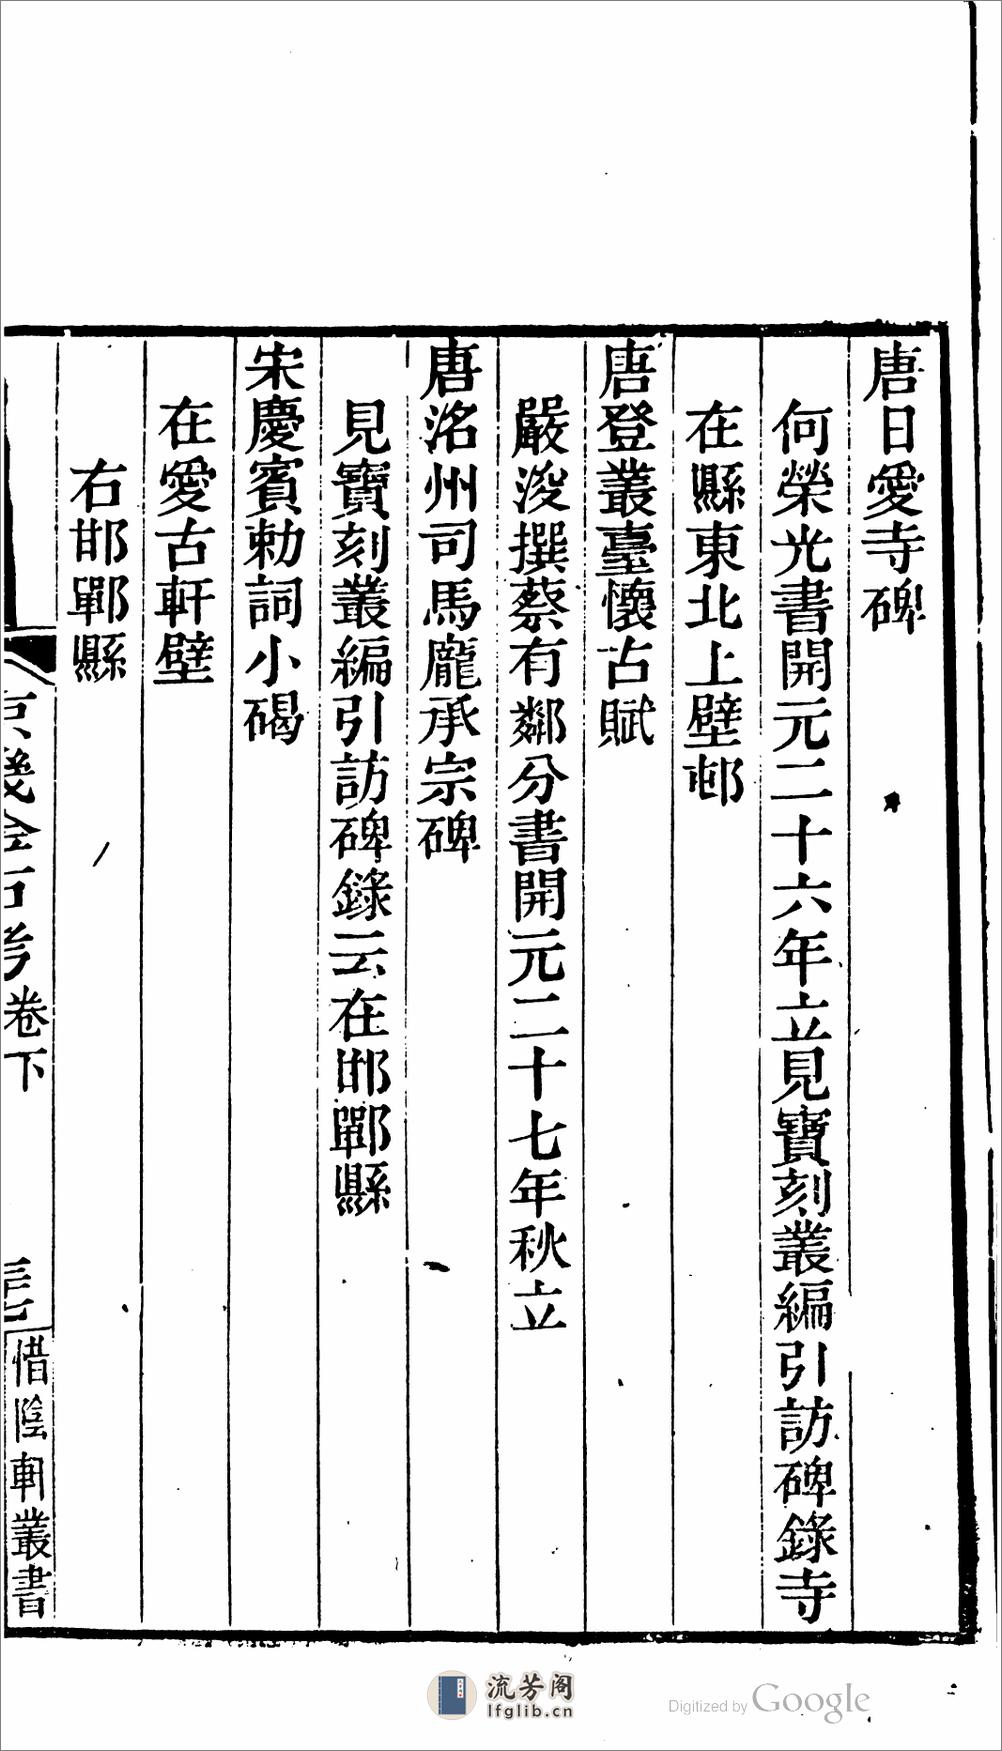 唐日愛寺碑
何榮光書開元二十六年立見寶刻叢編引訪碑錄寺
在縣東北上壁邨
唐登叢臺懷古賦
嚴浚撰蔡有鄰分書開元二十七年秋立
唐洺州司馬龐承宗碑
見寶刻叢編引訪碑錄云在邯鄲縣
宋慶賓勅詞小碣
在愛古軒壁
右邯鄲縣
京畿金石考卷下
惜陰軒叢書
流芳阁
lfglib.cn
Digitized by Google